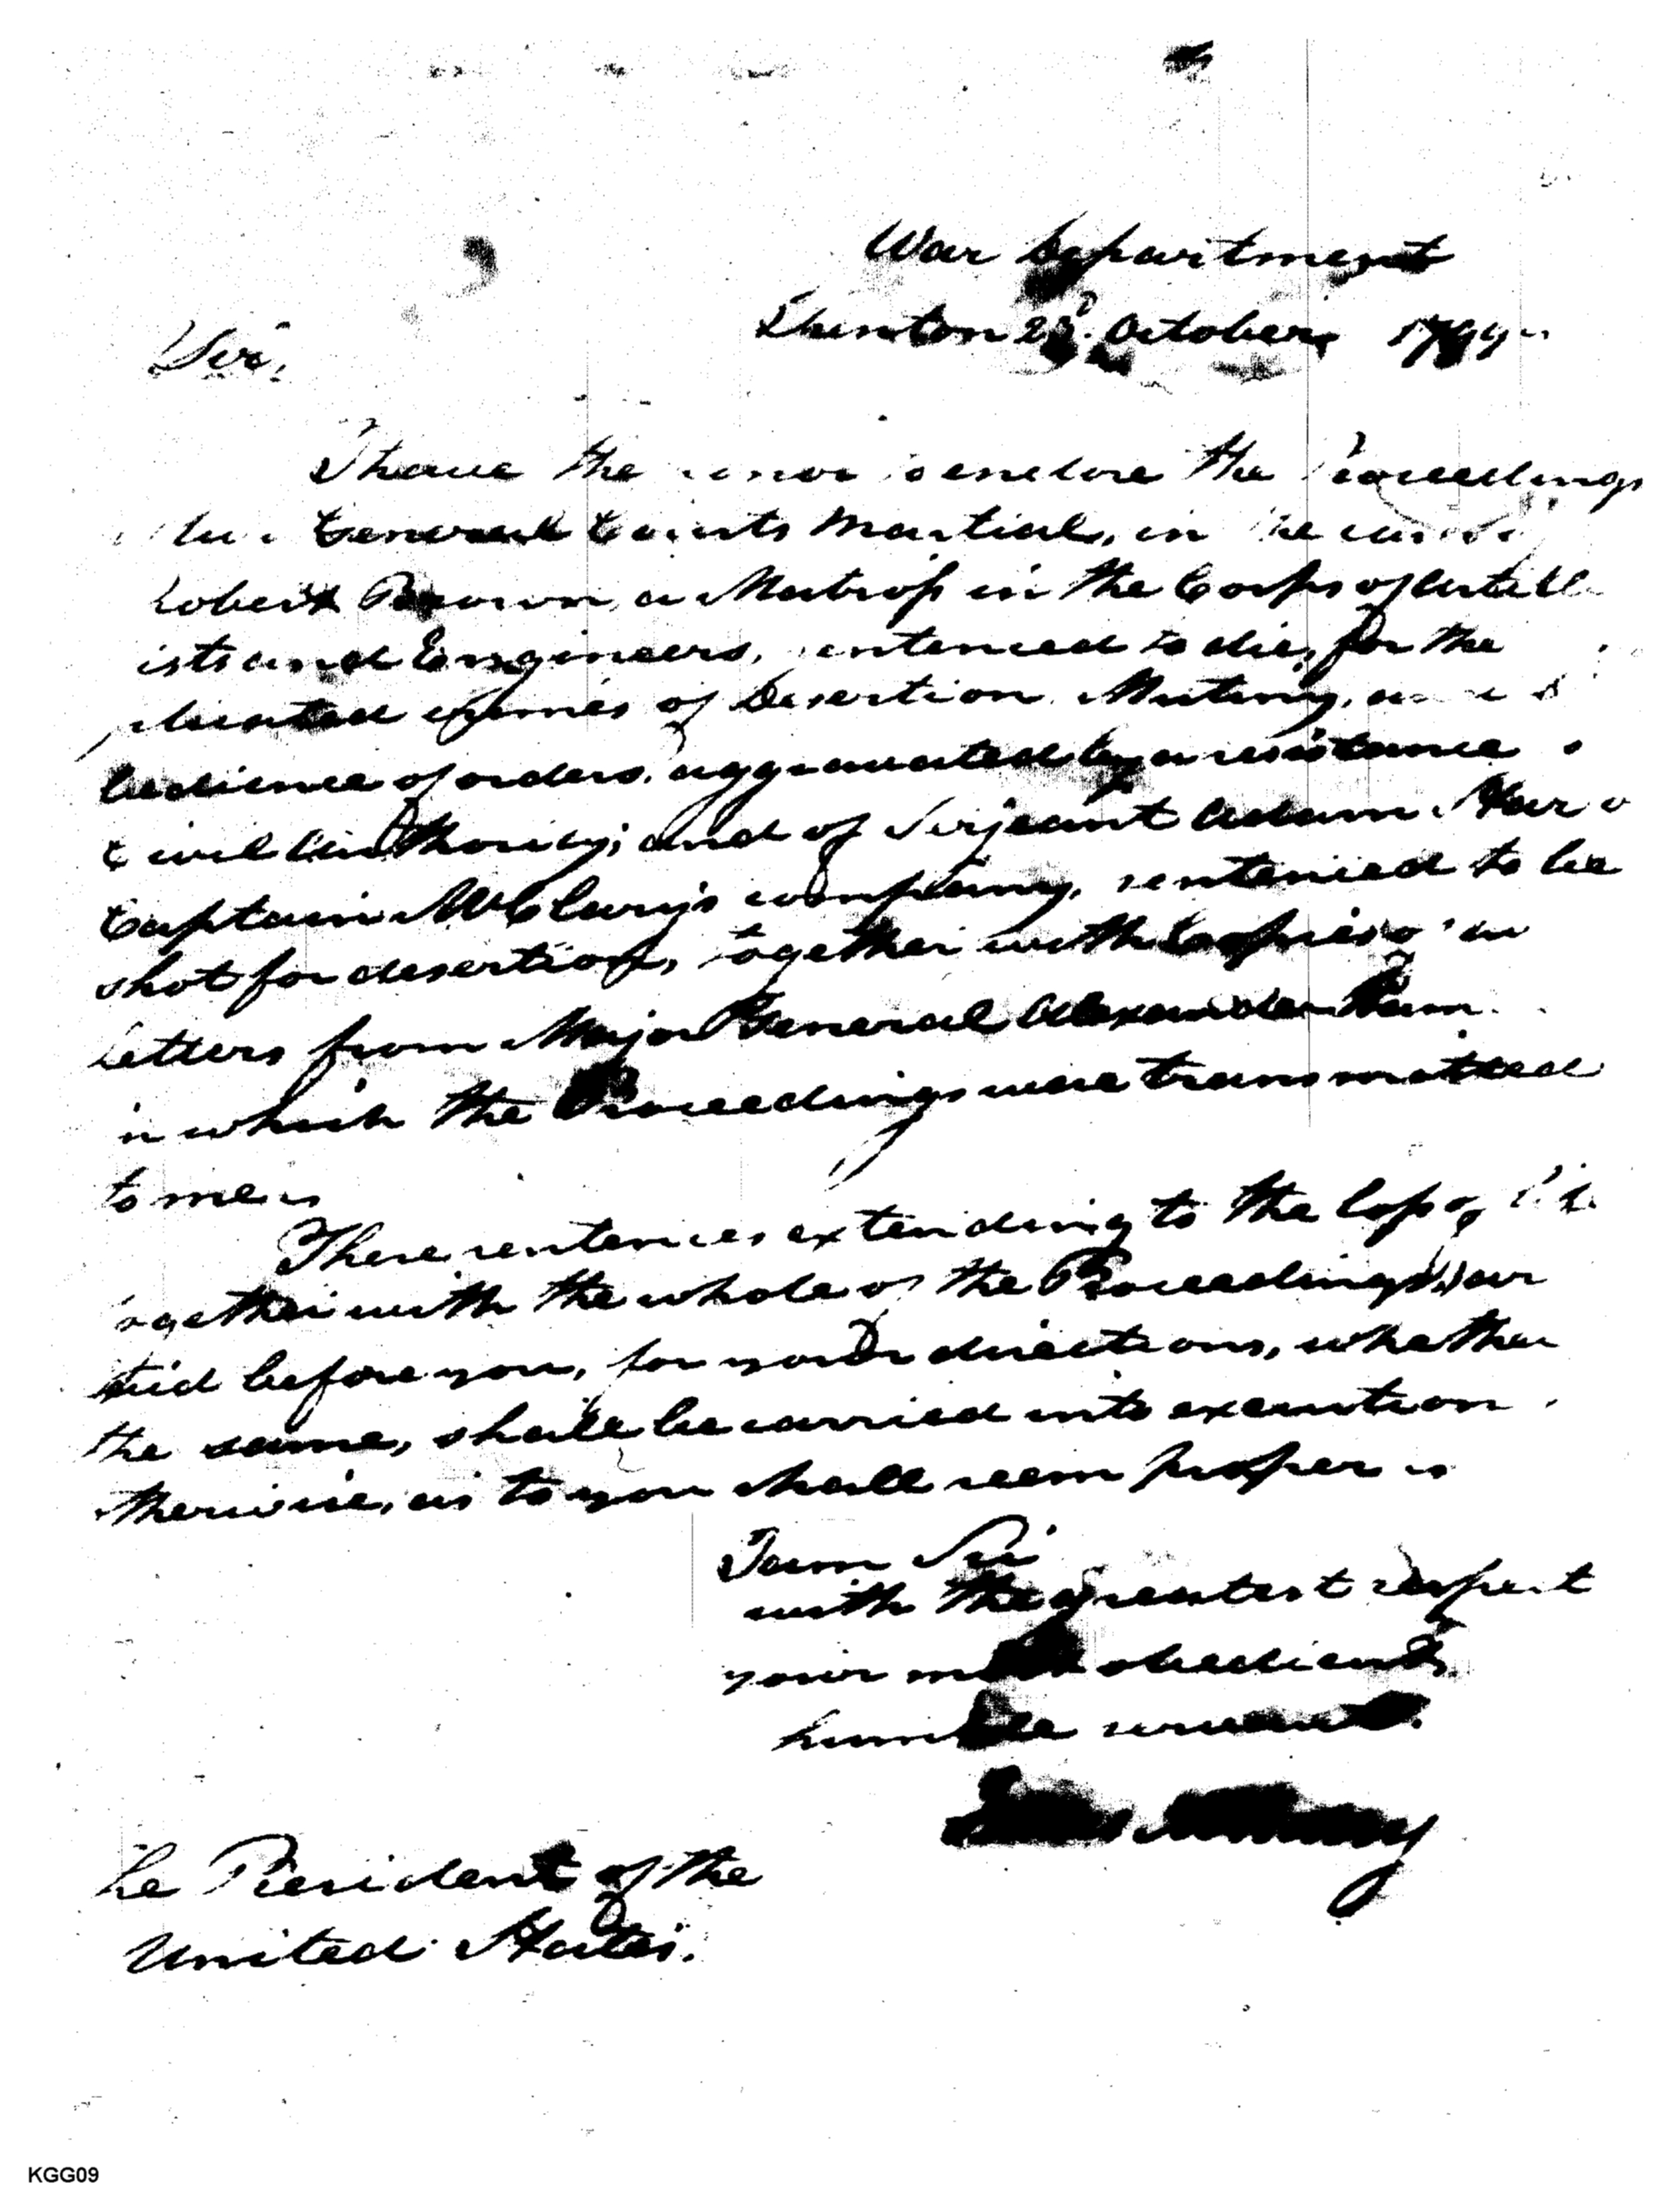 War Department
Trenton October 1799
Sir,
I have the enclose the Proceedings
General Courts Martial, in
Robert Brown, a Matross in the Corps of Artill
ists and Engineers, sentenced to die, for the
plicated crimes of Desertion Mutiny,
bedience of orders, aggravated by a resistance
Civil Authority; and of Serjeant Adam
Captain McClary's company, sentenced to be
shot for desertion, together with Copies
letters from Major General Alexander Ham
in which the Proceedings were transmitted
to me
These sentences extending to the loss
together with the whole of the Proceedings
laid before you, for your directions, whether
the same, shall be carried into execution
otherwise, as to you shall seem proper
I am Sir
with the greatest respect
your most obedient
humble servant.
The President of the
United States.
KGG09